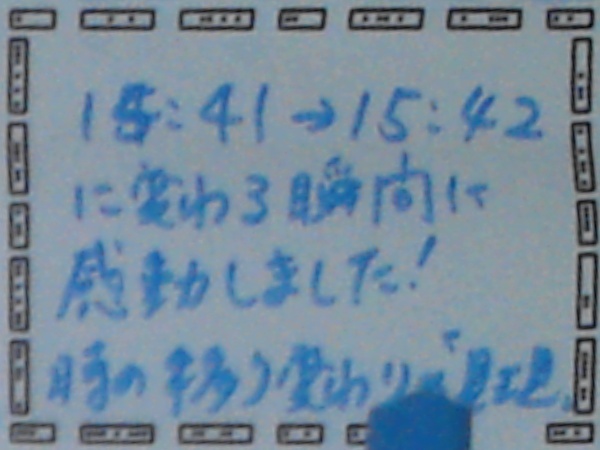 15:41→15:42
に変わる瞬間に
感動しました!
時の移り変わり